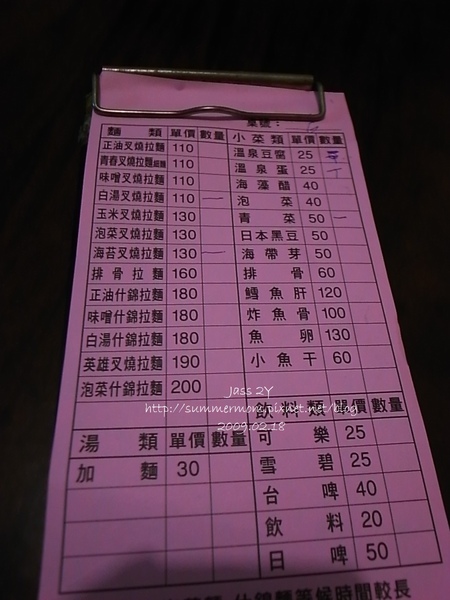 單號：
麵類 單價 數量 小菜類 單價 數量
正油叉燒拉麵 110 溫泉豆腐 25
青春叉燒拉麵 110 溫泉蛋 25
味噌叉燒拉麵 110 海藻醋 40
白湯叉燒拉麵 110 一 泡菜 40
玉米叉燒拉麵 130 青菜 50 一
泡菜叉燒拉麵 130 日本黑豆 50
海苔叉燒拉麵 130 一 海帶芽 50
排骨拉麵 160 排骨 60
正油什錦拉麵 180 鱈魚肝 120
味噌什錦拉麵 180 炸魚骨 100
白湯什錦拉麵 180 魚卵 130
英雄叉燒拉麵 190 小魚干 60
泡菜什錦拉麵 200
Jass 2Y
2009.02.18
飲料類 單價 數量
湯類 單價 數量 可樂 25
加麵 30 雪碧 25
台啤 40
飲料 20
日啤 50
什錦麵等候時間較長